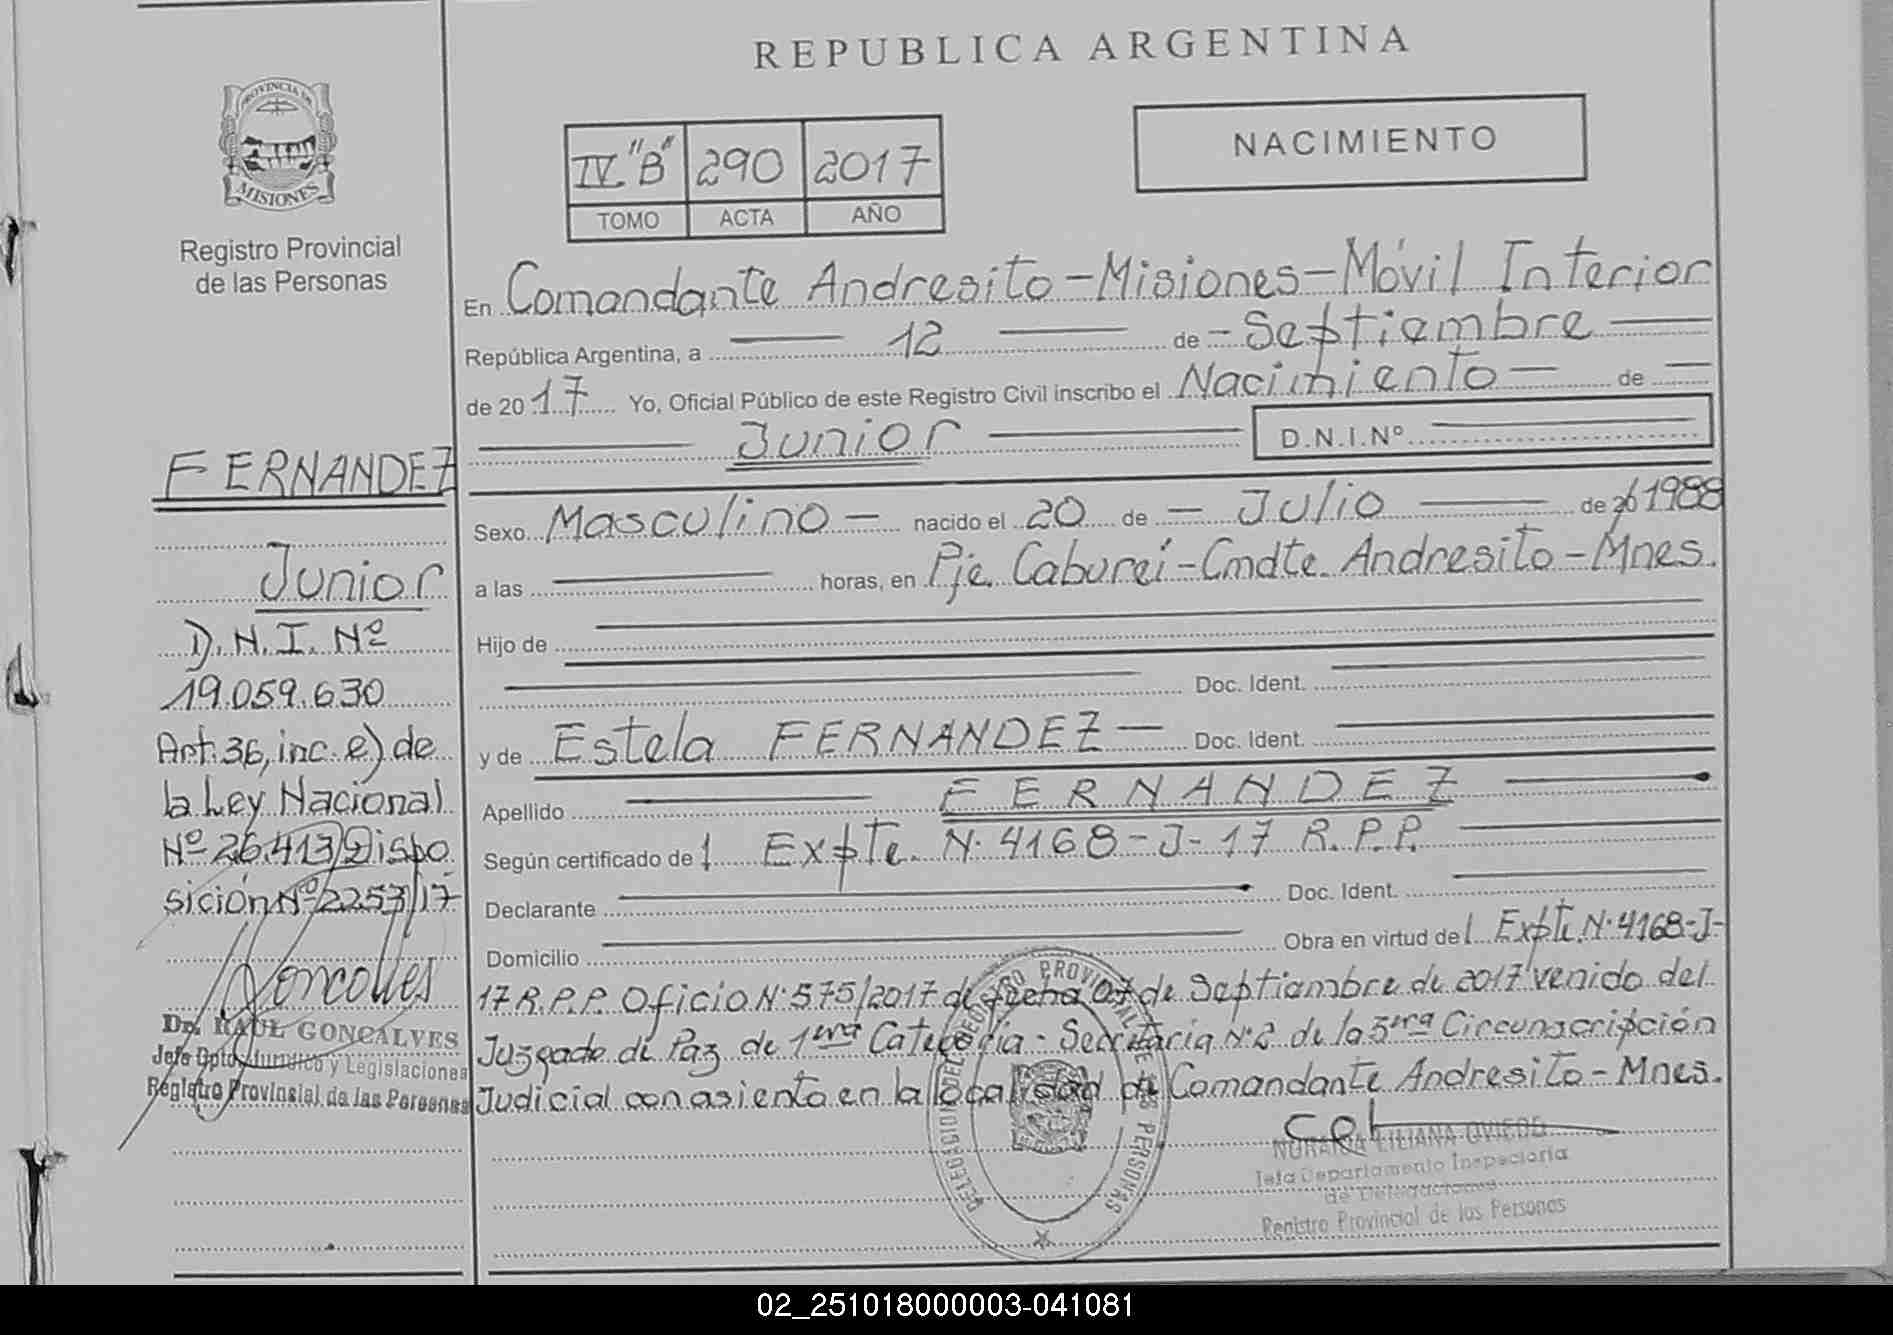 REPUBLICA ARGENTINA
PROVINCIA DE
MISIONES
Registro Provincial
de las Personas
IV "B" 290 2017
TOMO ACTA AÑO
NACIMIENTO
En Comandante Andresito - Misiones - Móvil Interior
República Argentina, a 12 de - Septiembre
de 2017 Yo, Oficial Público de este Registro Civil inscribo el Nacimiento - de -
Junior D.N.I.Nº
Sexo Masculino - nacido el 20 de - Julio de 20 1988
a las horas, en Pje. Cabureí - Cmdte. Andresito - Mnes.
Hijo de
Doc. Ident.
y de Estela FERNANDEZ - Doc. Ident.
Apellido FERNANDEZ
Según certificado de l Expte. N. 4168-J-17 R.P.P.
Declarante Doc. Ident.
Domicilio Obra en virtud del Expte. N. 4168-J-
17 R.P.P. Oficio N. 575/2017 de fecha 07 de Septiembre de 2017 venido del
Juzgado de Paz de 1era Categoría - Secretaría Nº 2 de la 3era Circunscripción
Judicial con asiento en la localidad de Comandante Andresito - Mnes.
FERNANDEZ
Junior
D.N.I. Nº
19.059.630
Art. 36, inc. e) de
la Ley Nacional
Nº 26.413/Dispo
sición Nº 2253/17
Dr. RAUL GONCALVES
Jefe Dpto. Jurídico y Legislaciones
Registro Provincial de las Personas
LILIANA OVIEDO
Jefa Departamento Inspectoría
de Delegaciones
Registro Provincial de las Personas
02_251018000003-041081